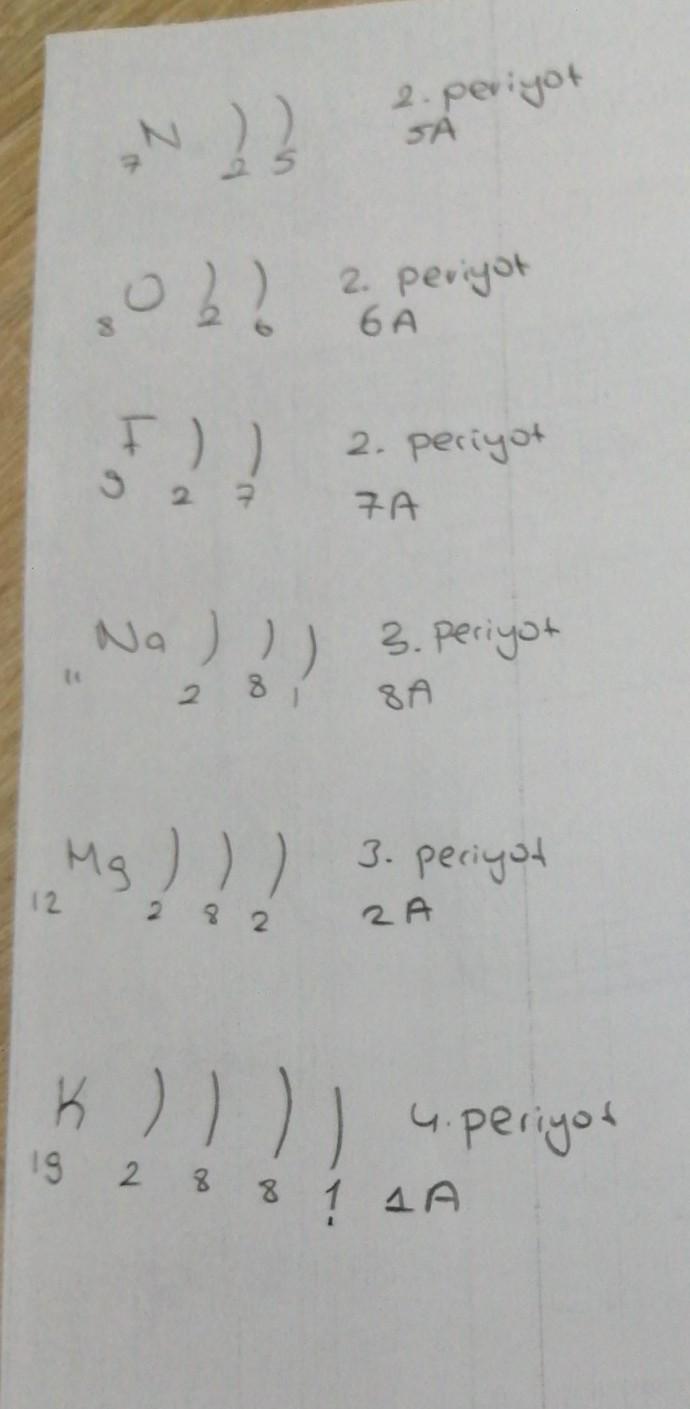 7N ) ) 2. periyot
2 5 5A
8O ) ) 2. periyot
2 6 6A
F ) ) 2. periyot
9 2 7 7A
Na ) ) ) 3. periyot
11 2 8 1 8A
Mg ) ) ) 3. periyot
12 2 8 2 2A
K ) ) ) ) 4. periyot
19 2 8 8 1 1A